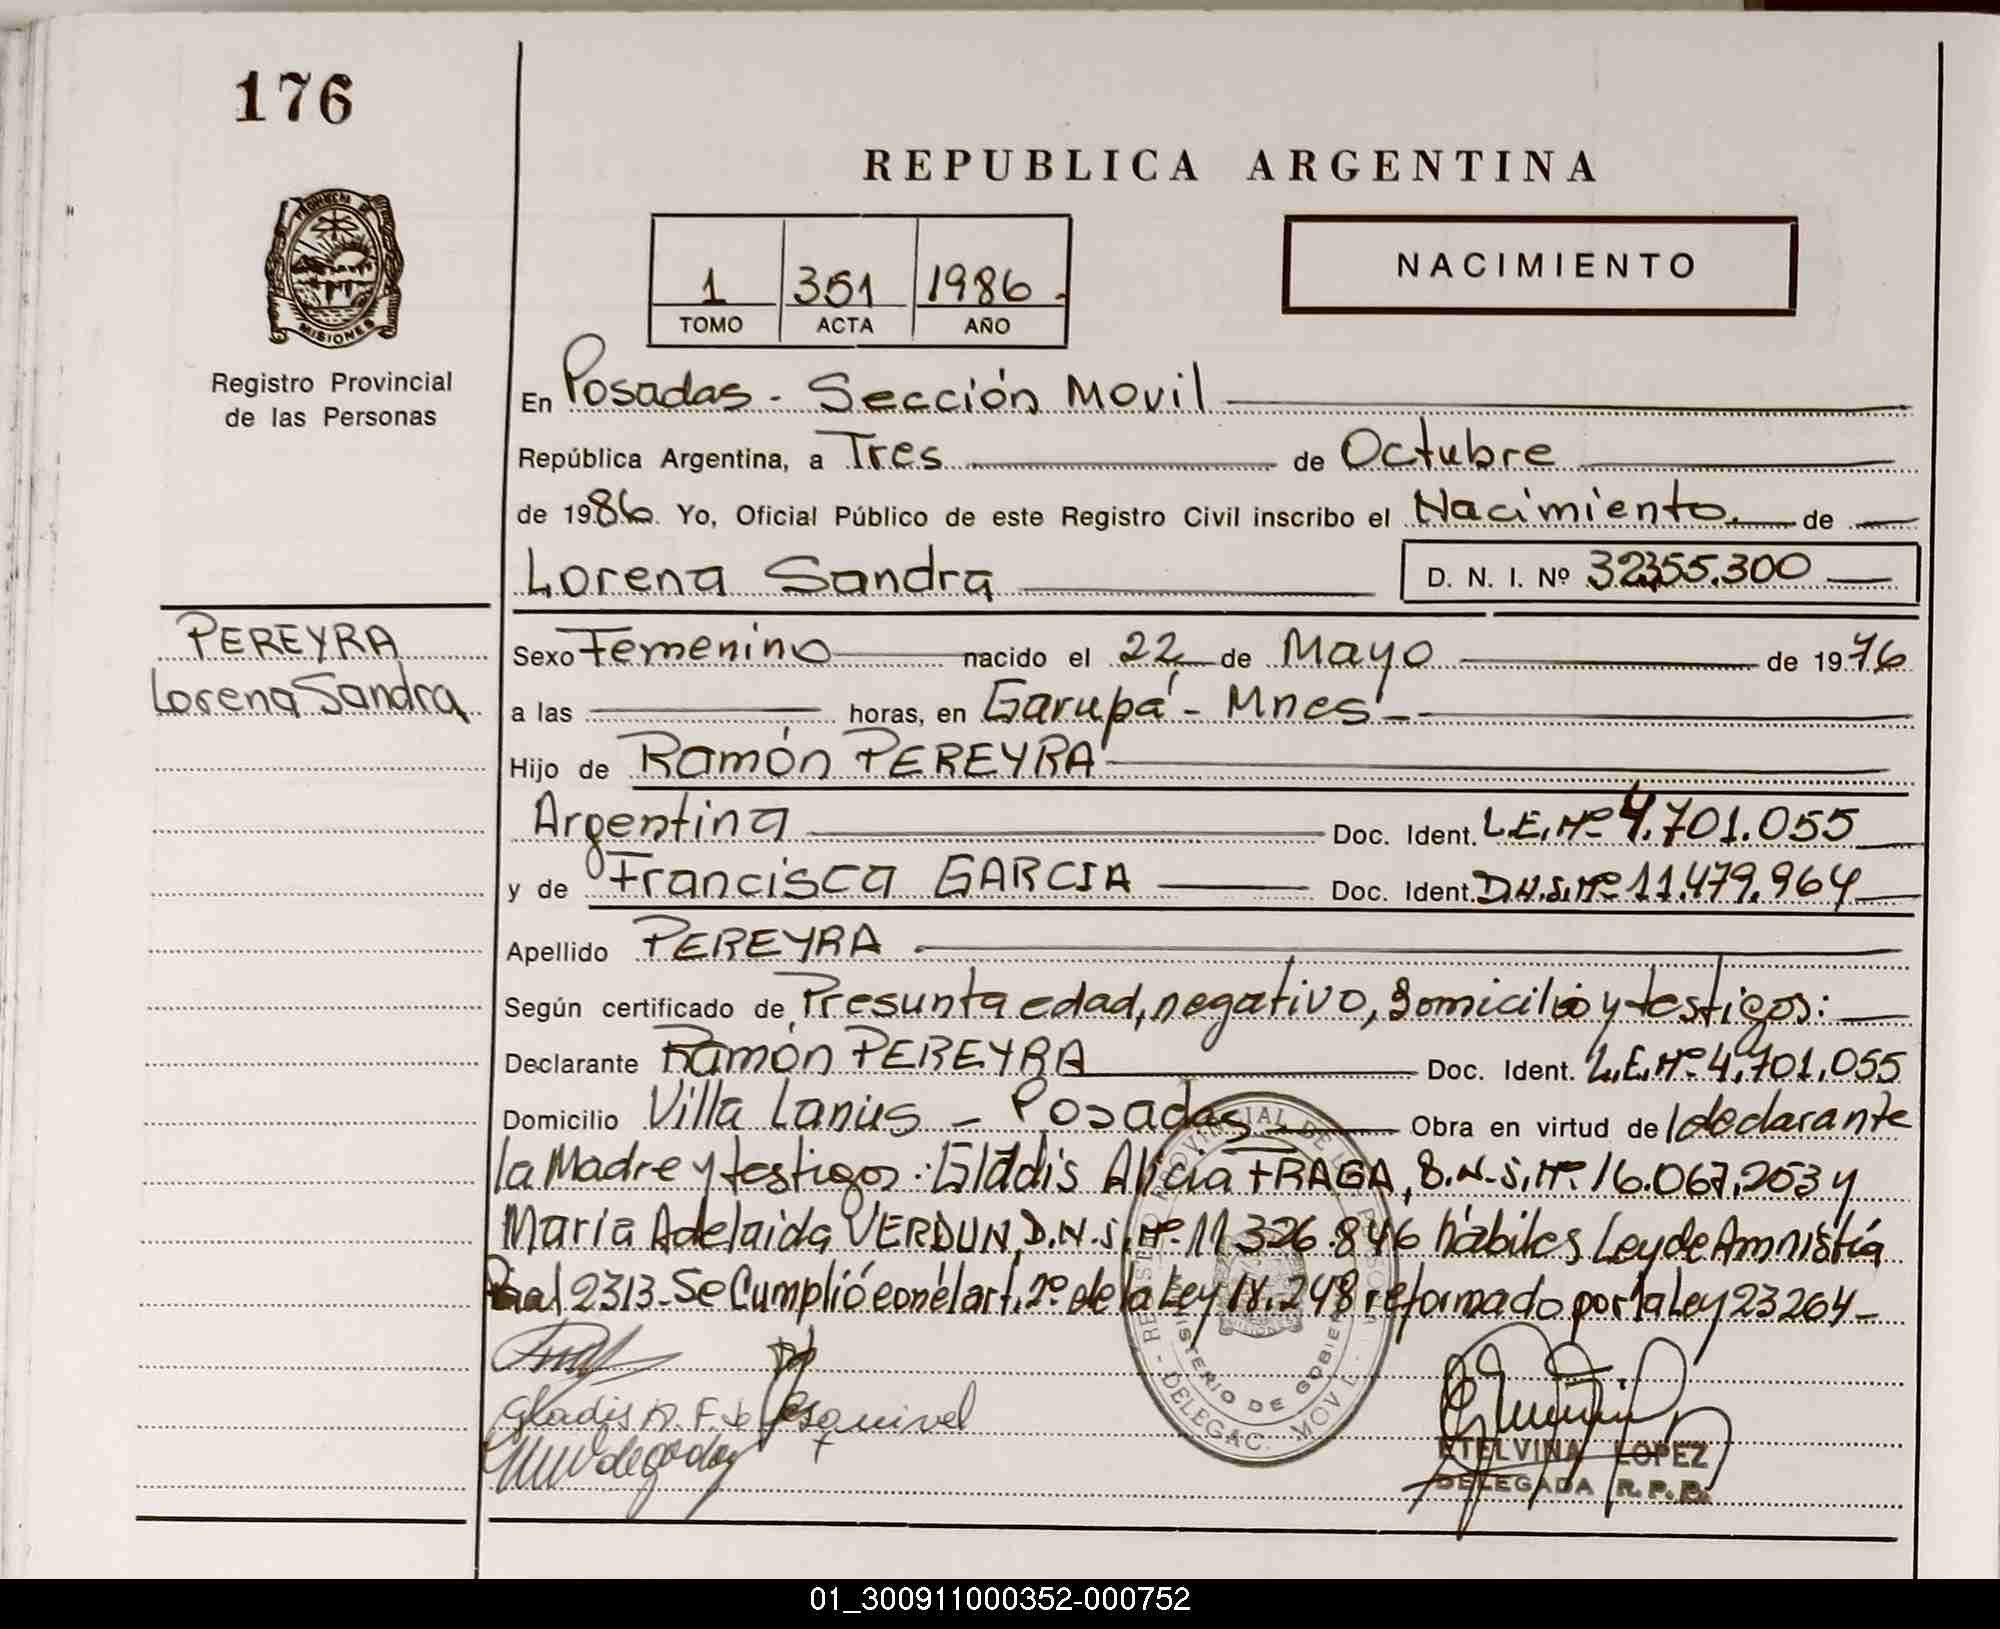 176
REPUBLICA ARGENTINA
PROVINCIA DE
MISIONES
Registro Provincial
de las Personas
1 351 1986.-
TOMO ACTA AÑO
NACIMIENTO
En Posadas - Sección Movil
República Argentina, a Tres de Octubre
de 1986. Yo, Oficial Público de este Registro Civil inscribo el Nacimiento. de
Lorena Sandra D. N. I. Nº 32355.300
PEREYRA
Lorena Sandra
Sexo Femenino nacido el 22 de Mayo de 1976
a las horas, en Garupá - Mnes -
Hijo de Ramón PEREYRA
Argentina Doc. Ident. L.E.Nº 4.701.055
y de Francisca GARCIA Doc. Ident. D.N.I.Nº 11.479.964
Apellido PEREYRA
Según certificado de Presunta edad, negativo, Domicilio y testigos:
Declarante Ramón PEREYRA Doc. Ident. L.E.Nº 4.701.055
Domicilio Villa Lanus - Posadas Obra en virtud de l declarante
la Madre y testigos: Gladis Alicia FRAGA, D.N.I.Nº 16.067.253 y
Maria Adelaida VERDUN, D.N.I.Nº 11.326.846 hábiles Ley de Amnistía
2313 - Se Cumplió con el art. 2º de la Ley 18.248 reformado por la Ley 23264 -
Gladis A. F. de Esquivel
REGISTRO PROVINCIAL DE LAS PERSONAS
MINISTERIO DE GOBIERNO
- DELEGAC. MOVIL -
MISIONES
ETELVINA LOPEZ
DELEGADA R.P.P.
01_300911000352-000752